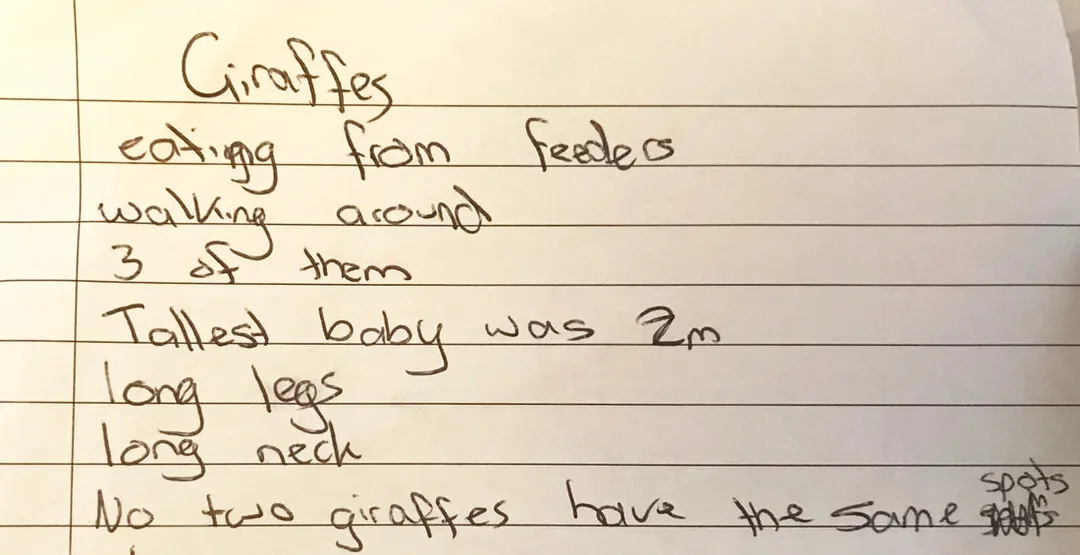 Giraffes
eating from feeders
walking around
3 of them
Tallest baby was 2m
long legs
long neck
No two giraffes have the same spots